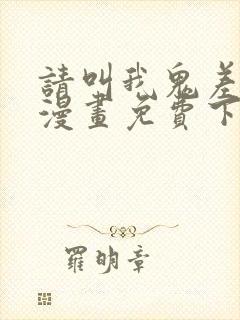 請叫我鬼差
漫畫免費下
羅明章